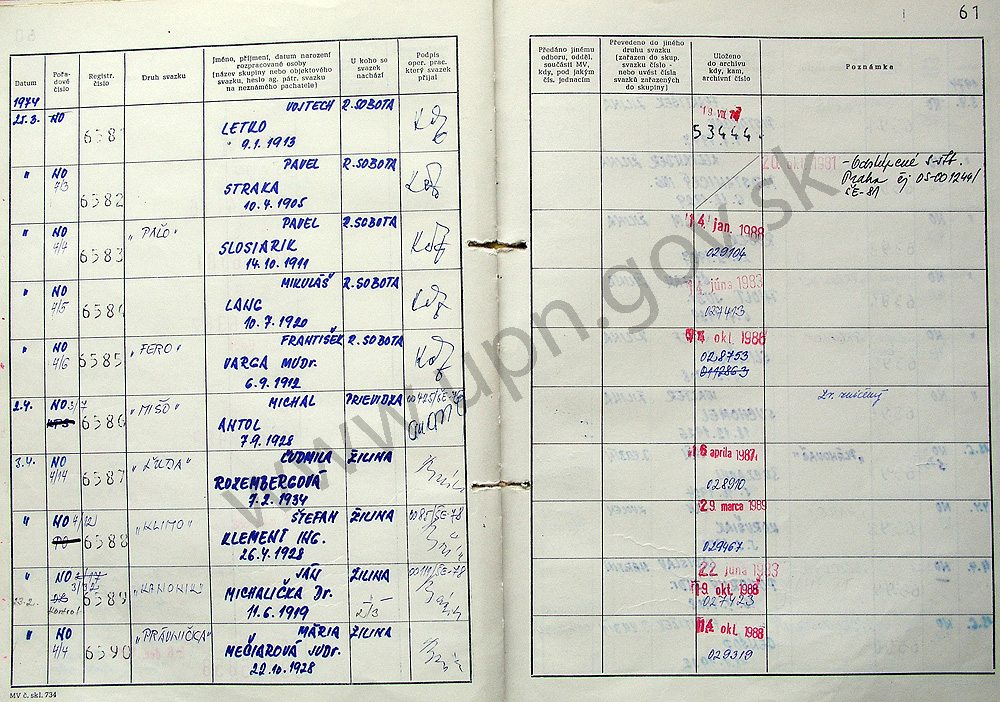 61
Datum
Pořa-
dové
číslo
Registr.
číslo
Druh svazku
Jméno, příjmení, datum narození
rozpracované osoby
(název skupiny nebo objektového
svazku, heslo ag. pátr. svazku
na neznámého pachatele)
U koho se
svazek
nachází
Podpis
oper. prac.
který svazek
přijal
Předáno jinému
odboru, odděl.
součásti MV,
kdy, pod jakým
čís. jednacím
Převedeno do jiného
druhu svazku
(zařazen do skup.
svazku číslo -
nebo uvést čísla
svazků zařazených
do skupiny)
Uloženo
do archivu
kdy, kam,
archivní číslo
Poznámka
1974
25.3. NO 6581 VOJTECH R. SOBOTA
LETKO
9.1.1913
53444.
" NO 7/3 6582 PAVEL R. SOBOTA
STRAKA
10.4.1905
20. okt. 1981
- Odstúpené
Praha čj OS-001244/
ŠE-81
" NO 4/4 6583 "PAĽO" PAVEL R. SOBOTA
SLOSIARIK
14.10.1911
14. jan. 1988
029104
" NO 4/5 6584 MIKULÁŠ R. SOBOTA
LANG
10.7.1920
júna 1983
027413
" NO 4/6 6585 "FERO" FRANTIŠEK R. SOBOTA
VARGA MUDr.
6.9.1912
okt. 1988
028753
2.4. NO 3/7 6586 "MIŠO" MICHAL PRIEVIDZA
ANTOL
7.9.1928
Zv. zničený
3.4. NO 4/14 6587 "ĽUDA" ĽUDMILA ŽILINA
ROZEMBERGOVÁ
7.2.1934
16 apríla 1987
028910
" NO 4/12 6588 "KLIMO" ŠTEFAN ŽILINA 0085/ŠE-78
KLEMENT ING.
26.4.1928
29. marca 1989
029467
" NO 6589 "KANONIK" JÁN ŽILINA
Kontrol.
MICHALIČKA Dr.
11.6.1919
22 júna 1983
19. okt. 1988
027423
" NO 4/4 6590 "PRÁVNIČKA" MÁRIA ŽILINA
MEČIAROVÁ JUDr.
22.10.1928
14. okt. 1988
029319
MV č. skl. 734
www.upn.gov.sk